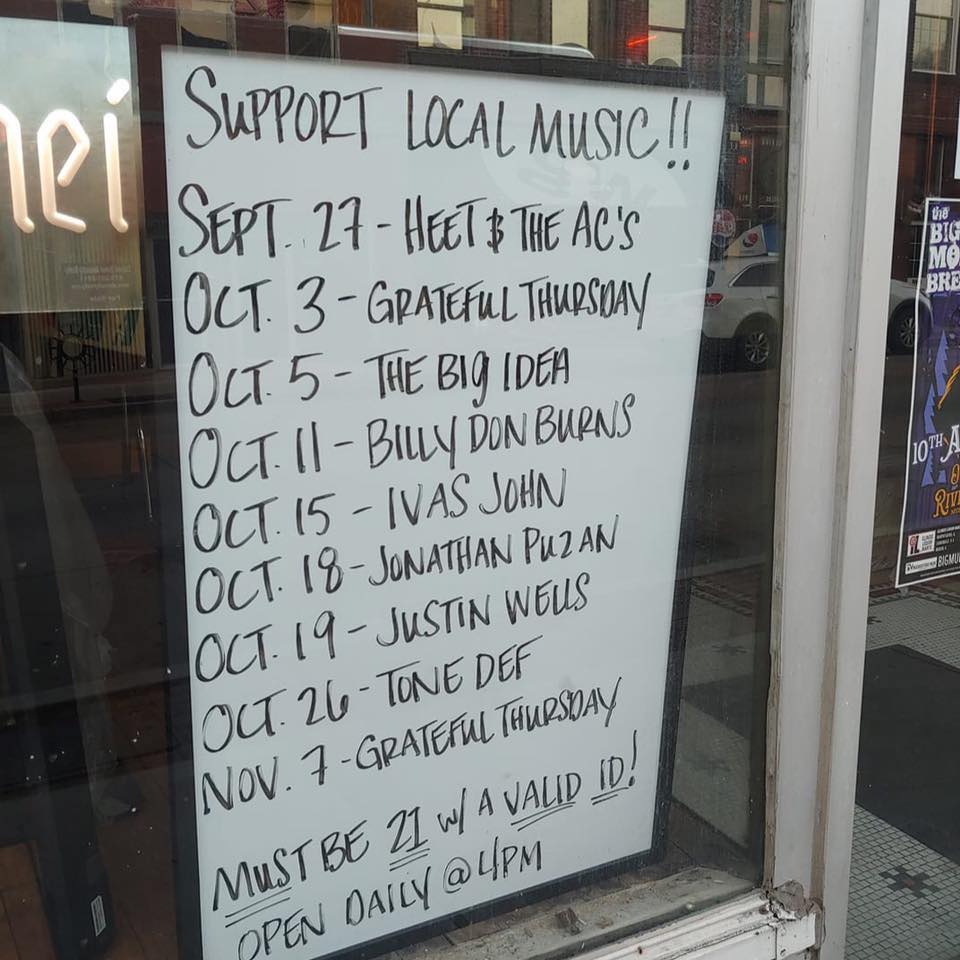 SUPPORT LOCAL MUSIC!!
SEPT. 27 - HEET & THE AC'S
OCT. 3 - GRATEFUL THURSDAY
OCT. 5 - THE BIG IDEA
OCT. 11 - BILLY DON BURNS
OCT. 15 - IVAS JOHN
OCT. 18 - JONATHAN PUZAN
OCT. 19 - JUSTIN WELLS
OCT. 26 - TONE DEF
NOV. 7 - GRATEFUL THURSDAY
MUST BE 21 w/ A VALID ID!
OPEN DAILY @ 4PM
nei
the
BIG
MO
BRE
10TH A
RIV
BIGMU